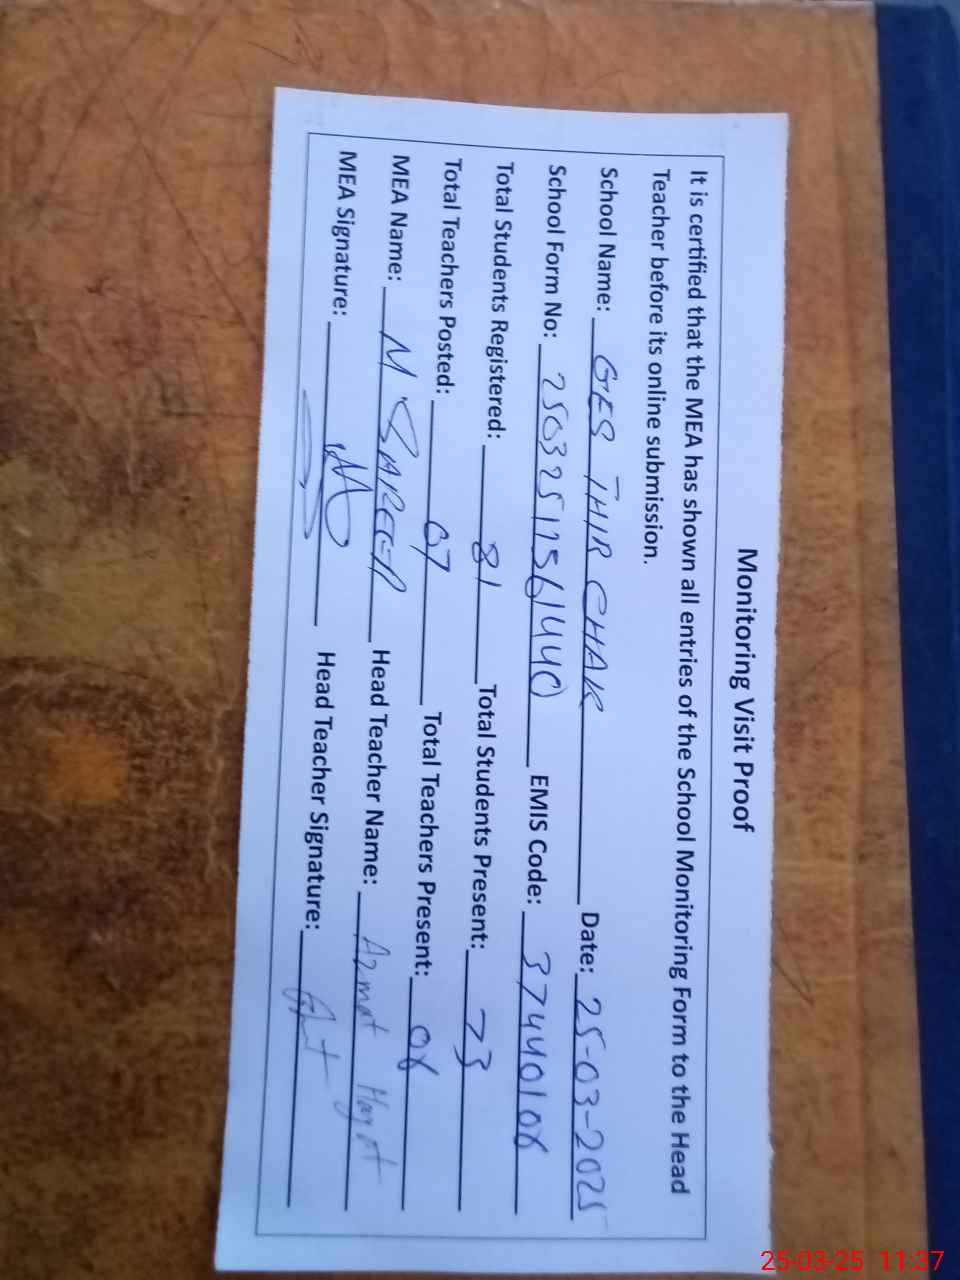 Monitoring Visit Proof
It is certified that the MEA has shown all entries of the School Monitoring Form to the Head
Teacher before its online submission.
School Name: GES THIR CHAK Date: 25-03-2025
School Form No: 25032511561440 EMIS Code: 37440108
Total Students Registered: 81 Total Students Present: 73
Total Teachers Posted: 07 Total Teachers Present: 06
MEA Name: M Head Teacher Name: Azmat Hayat
MEA Signature: Head Teacher Signature:
25-03-25 11:37